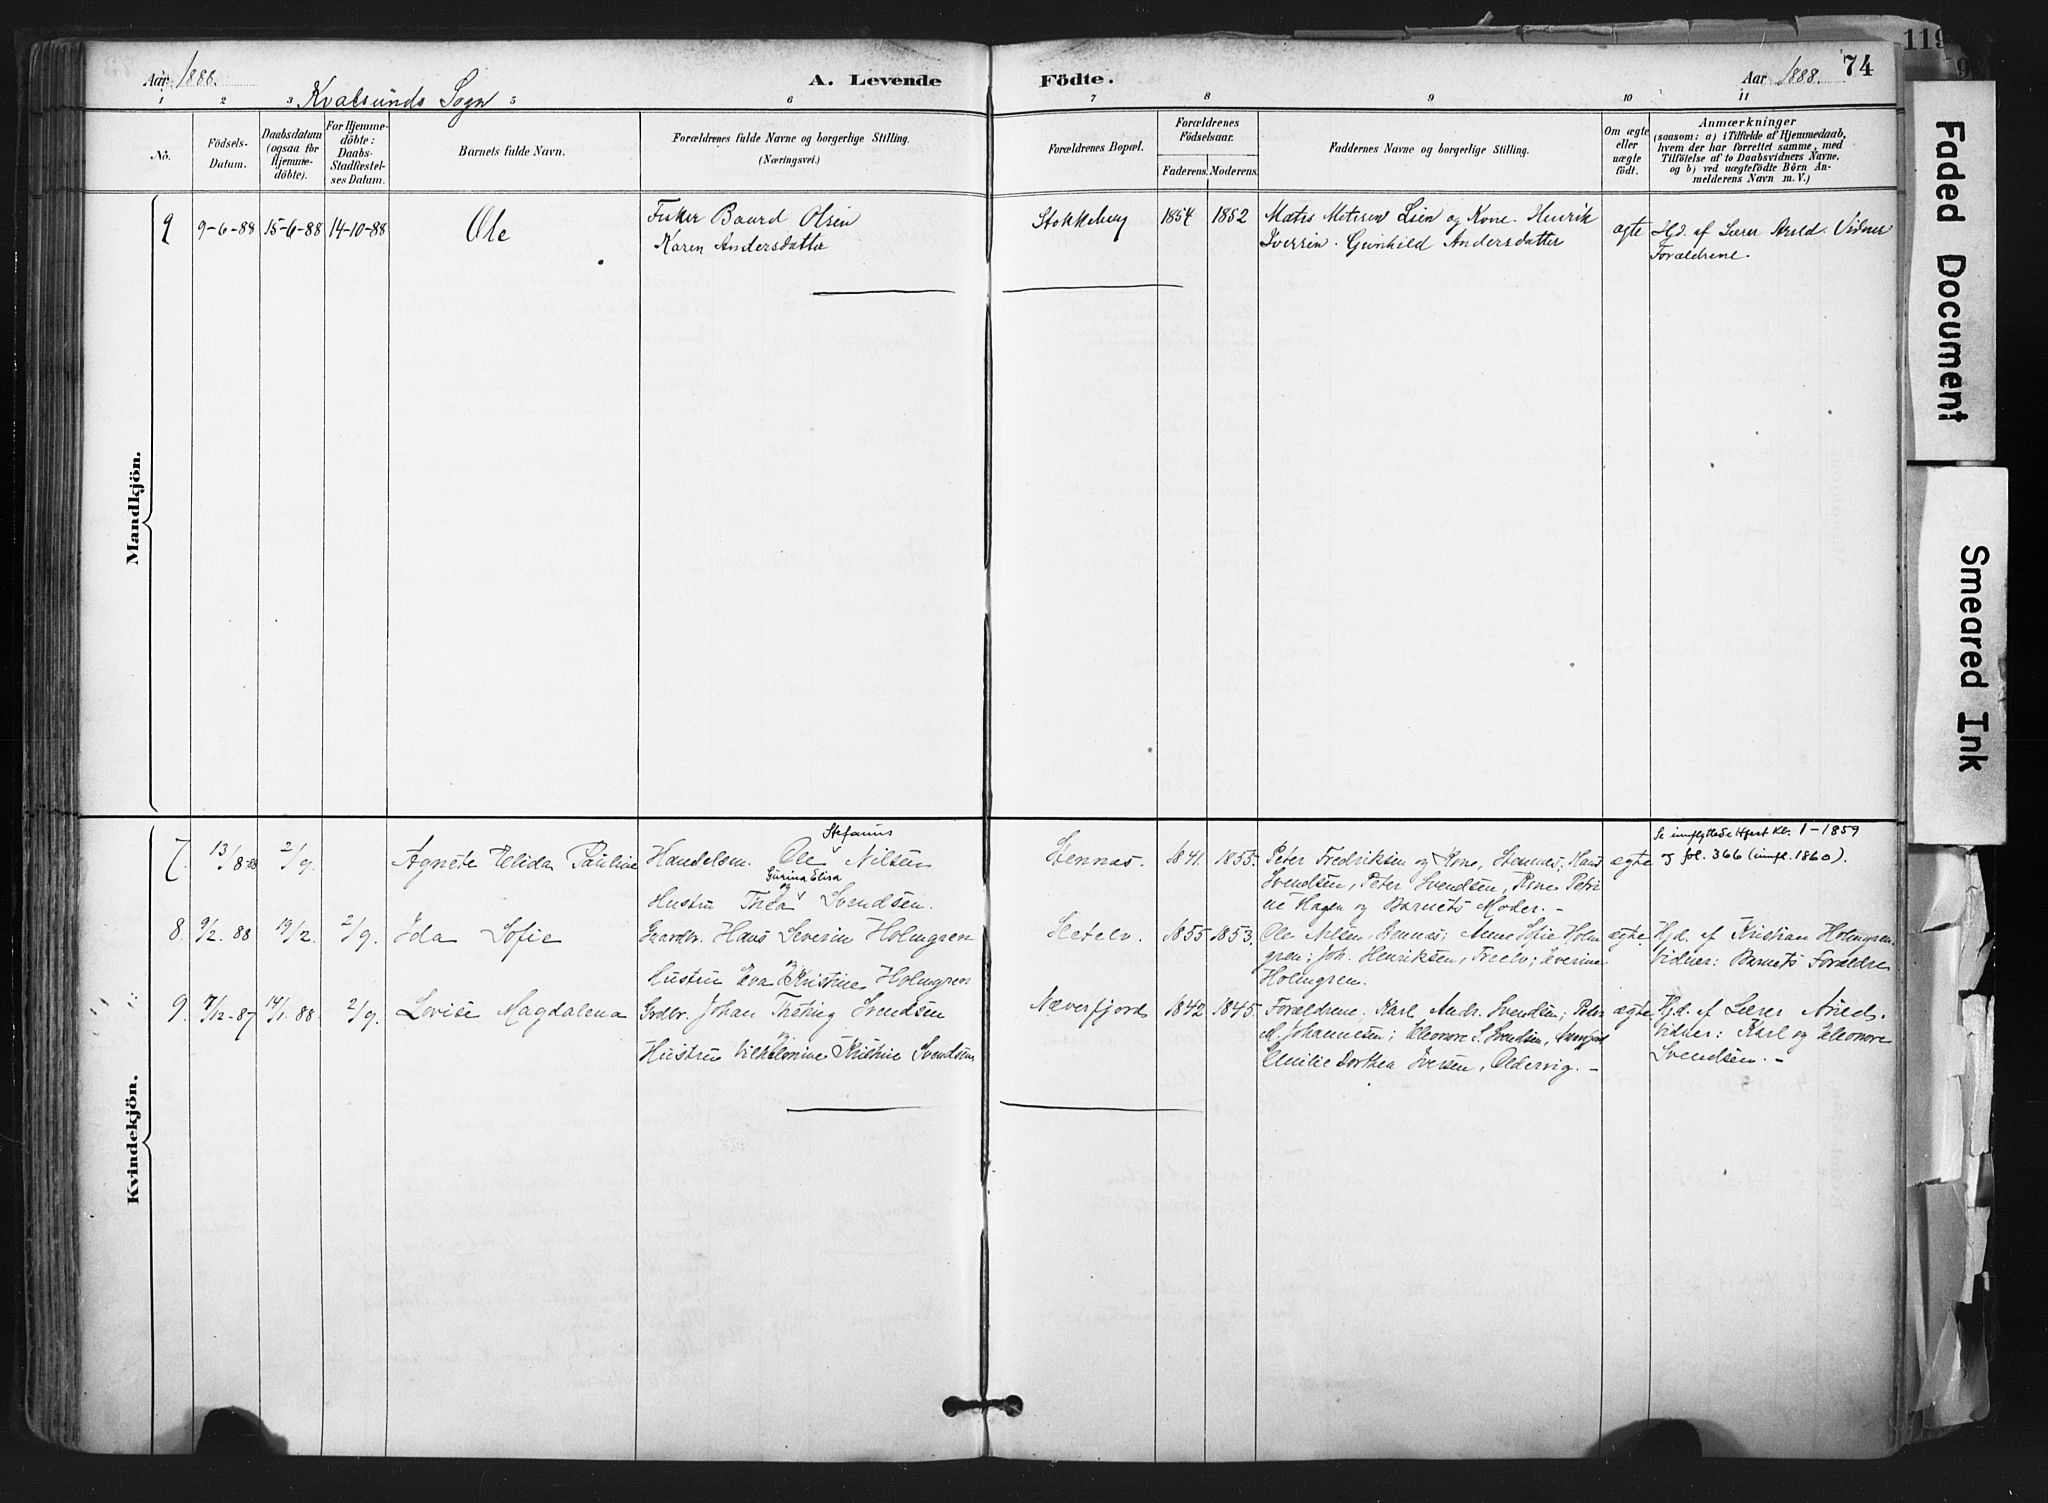 Aar 1888.
A. Levende
Födte.
Aar 1888.
74
119
Kvalsunds Sogn
1 2 3 5 6 7 8 9 10 11
No.
Födsels-
Datum.
Daabsdatum
(ogsaa for
Hjemme-
döbte).
For Hjemme-
döbte:
Daabs-
Stadfæstel-
ses Datum.
Barnets fulde Navn.
Forældrenes fulde Navne og borgerlige Stilling.
(Næringsvei.)
Forældrenes Bopæl.
Forældrenes
Födselsaar.
Faderens. Moderens.
Faddernes Navne og borgerlige Stilling.
Om ægte
eller
uægte
födt.
Anmærkninger
(saasom: a) i Tilfælde af Hjemmedaab,
hvem der har forrettet samme, med
Tilföielse af to Daabsvidners Navne,
og b) ved uægtefödte Börn An-
melderens Navn m. V.)
Mandkjön.
9 9-6-88 15-6-88 14-10-88 Ole
Fisker Baard Olsen
Karen Andersdatter
Stokkebug 1854 1852
Mæts Metesen Lien og Kone. Henrik
Iversen. Gunhild Andersdatter
ægte
Hjd. af Lærer Arild. Vidner
Forældrene.
Kvindekjön.
7. 13/8 88 2/9. Agnete Elida Pauline
Stefanus
Handelsm. Ole Nilsen
Gurina Elisa
og
Hustru Thea Svendsen.
Stennæs. 1841. 1855.
Peter Fredriksen og Kone, Stennæs; Hans
Svendsen, Peter Svendsen, Kone Petri
ne Hagen og Barnets Moder. -
ægte
Se innflyttede Hfest kl. 1-1859
og fol. 366 (innfl. 1860).
8. 9/2. 88 19/2. 2/9. Ida Sofie
Gaardbr. Hans Severin Holmgren
og
Hustru Eva Kristine Holmgren
Sletelv. 1855 1853.
Ole Nilsen Stennæs; Anne Sofie Holm
gren; Joh. Henriksen, Treelv; Severine
Holmgren.
ægte
Hjd. af Kristian Holmgren.
Vidner: Barnets Forældre
9. 7/12-87 14/1. 88. 2/9. Lovise Magdalena
Grdbr. Johan Thöning Svendsen
og
Hustru Vilhelmine Kristine Svendsen
Næverfjord 1842 1845.
Forældrene, Karl Andr. Svendsen; Peter
M. Johannesen; Eleonore S. Svendsen,
Emilie Dorthea Iversen, Oldervig. -
ægte
Hjd. af Lærer Arild.
Vidner: Karl og Eleonore
Svendsen. -
Faded Document
Smeared Ink